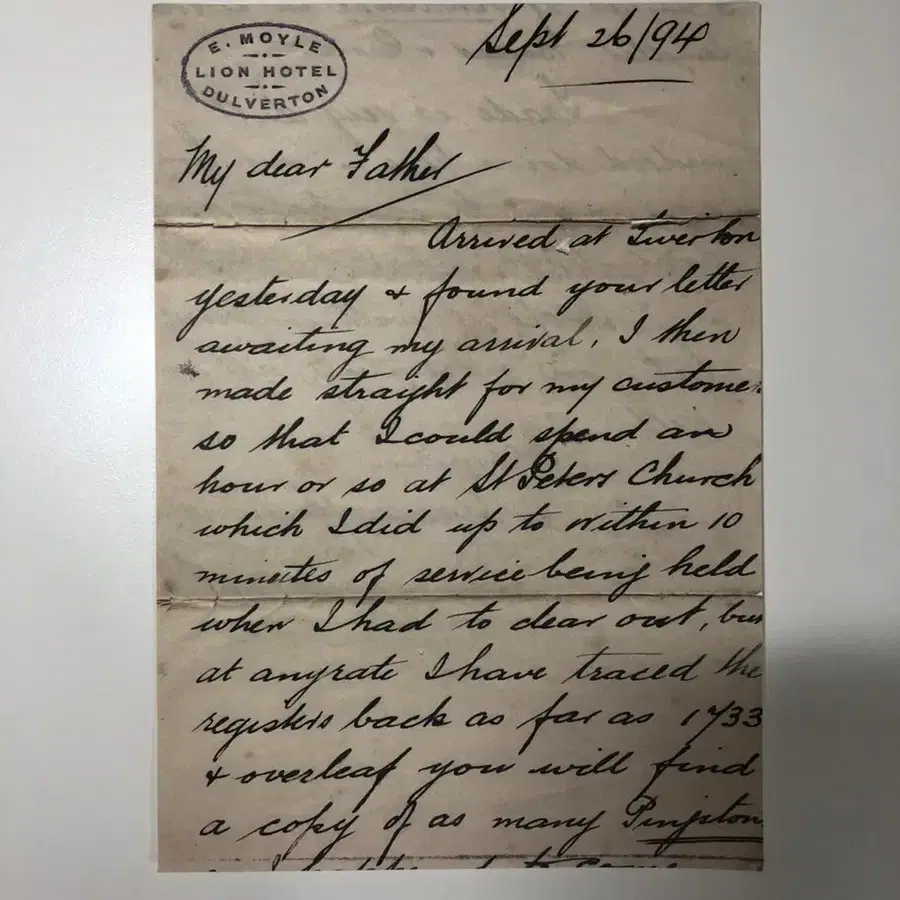 E. MOYLE
LION HOTEL
DULVERTON
Sept 26/94
My dear Father
Arrived at Tiverton
yesterday & found your letter
awaiting my arrival, I then
made straight for my customer
so that I could spend an
hour or so at St Peters Church
which I did up to within 10
minutes of service being held
when I had to clear out, but
at anyrate I have traced the
registers back as far as 1733
& overleaf you will find
a copy of as many